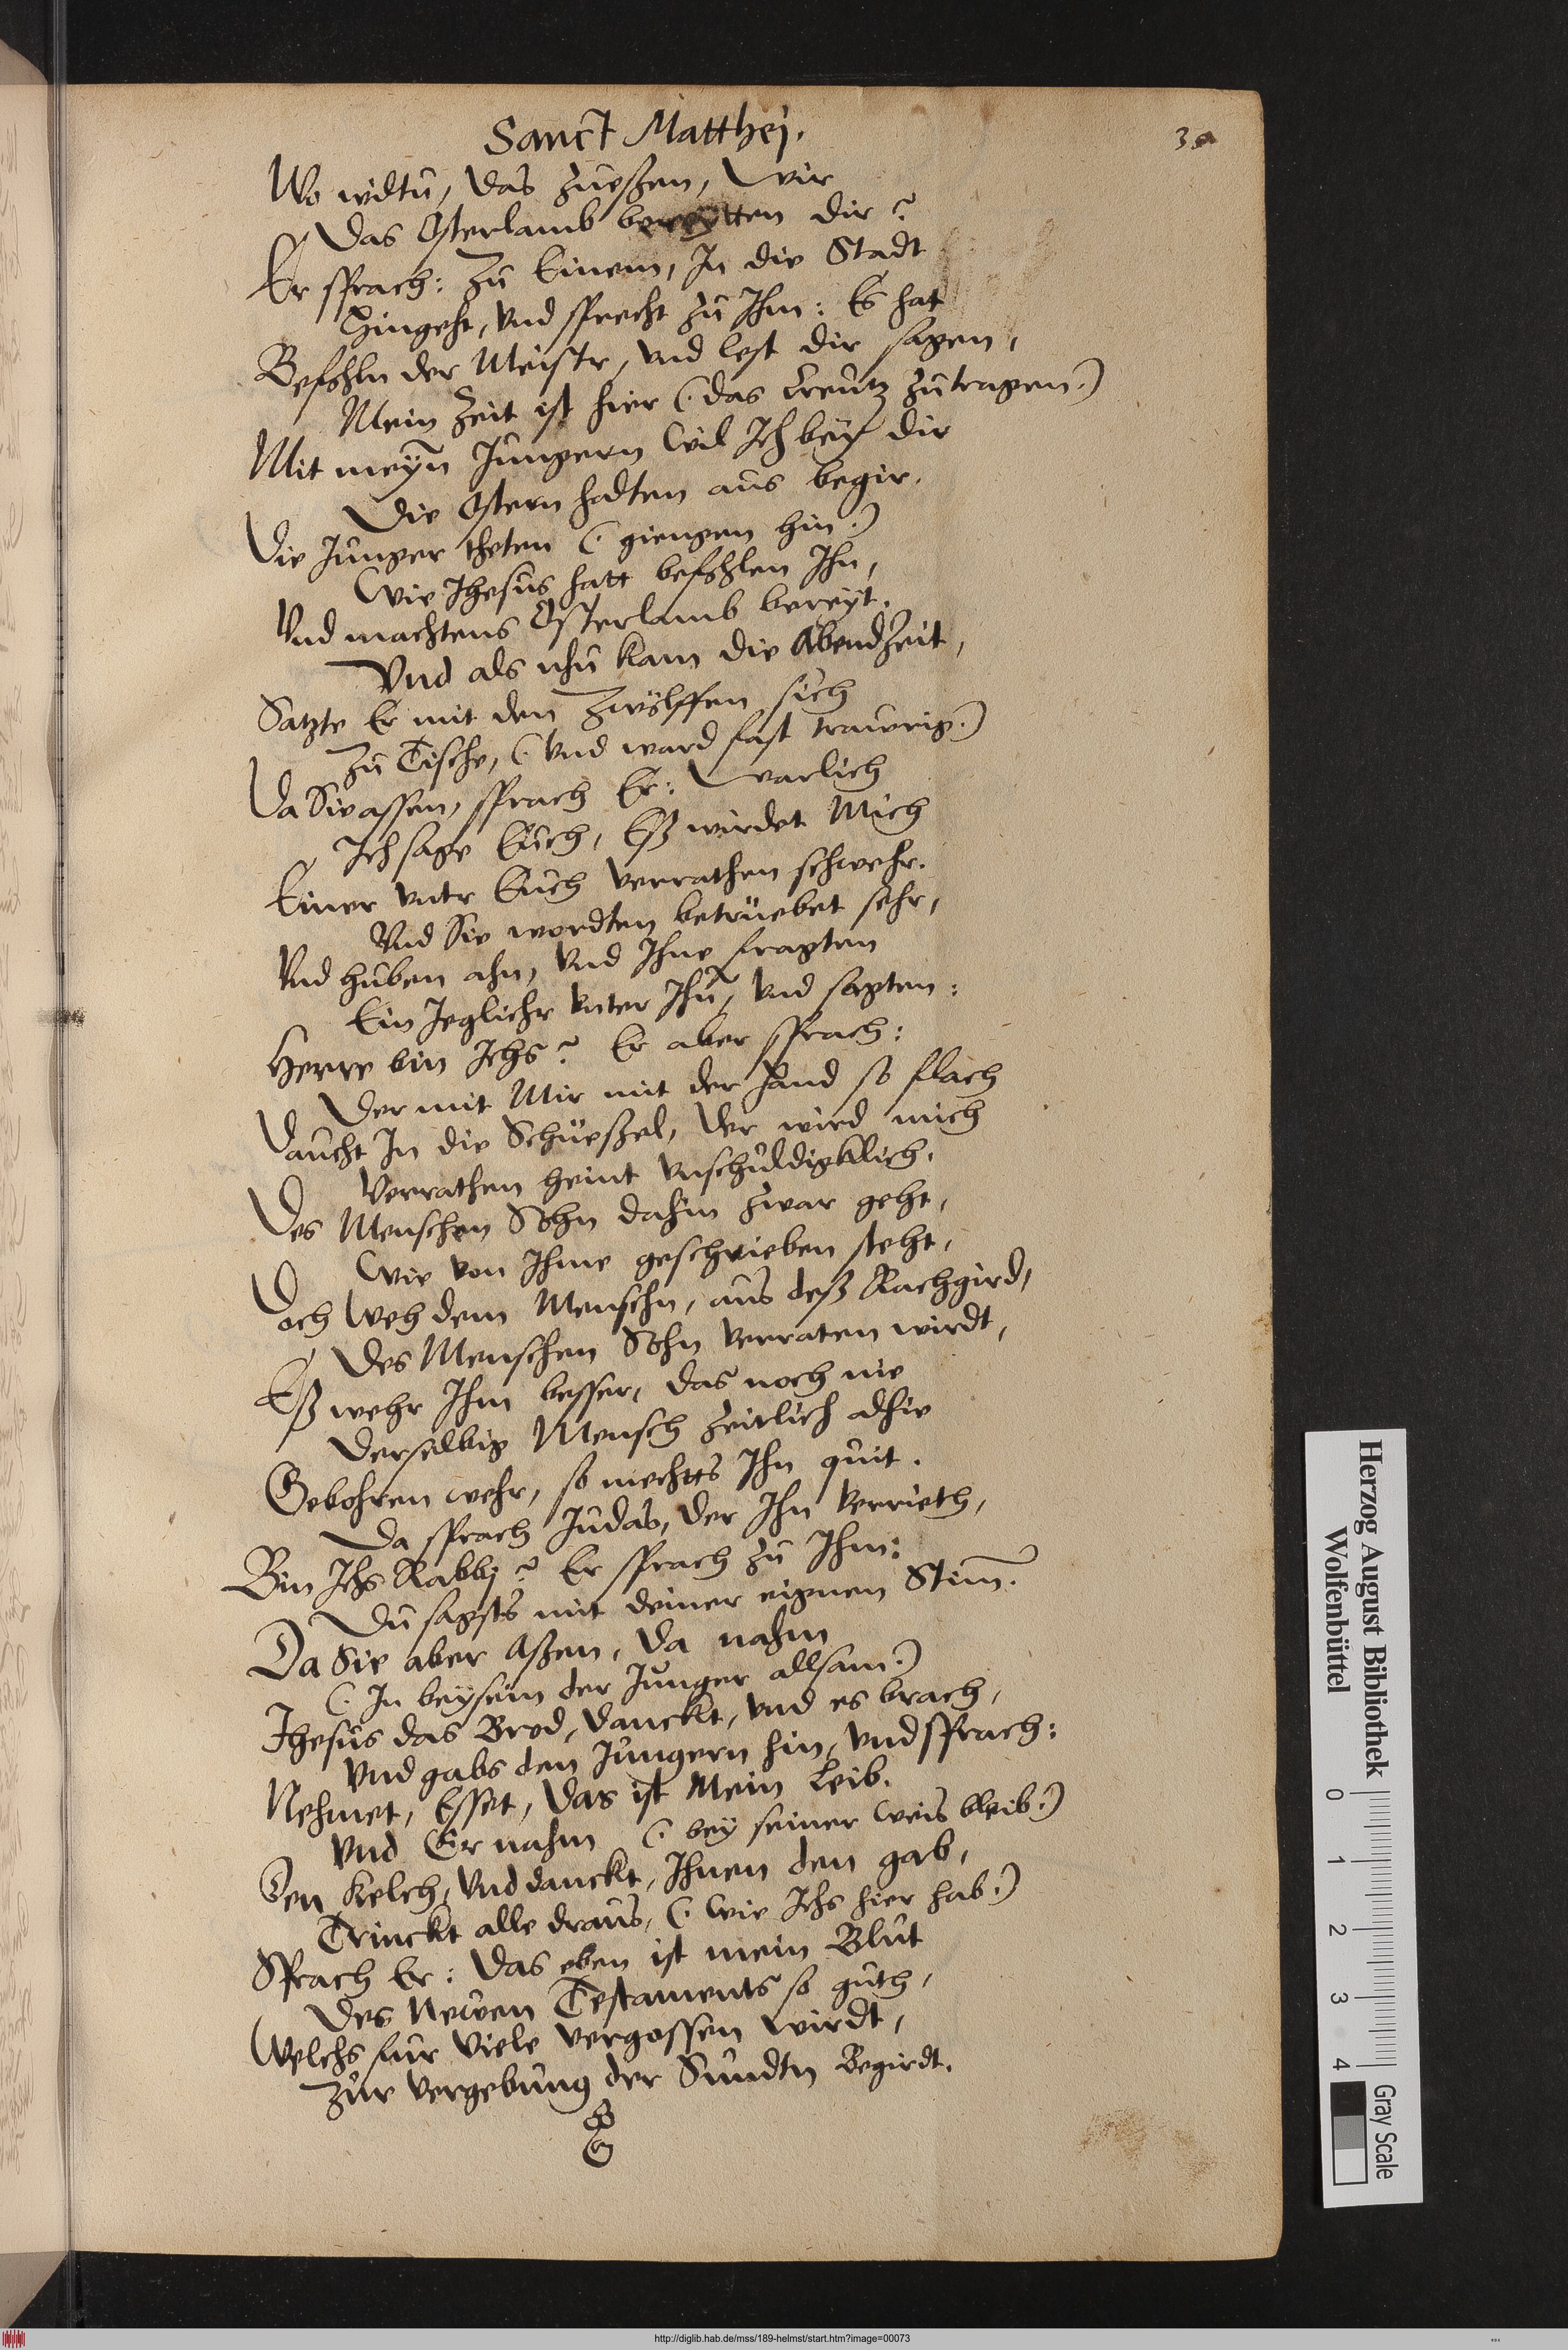 Sanct Matthej.
Wo wildtu, das zueßen, wir
Das Osterlamb bereytten dir?
Er sprach: Zu Einem, In die Stadt
Hingeht, Vnd sprecht zu Ihm: Es hat
Befohln der Meistr, vnd lest dir sagen,
Mein Zeit ist hier (: das Creutz zutragen:)
Mit meyn Jungern wil Ich bey dir
Die Ostern halten aus begir.
Die Junger theten (: giengen hin:)
Wie Ihesus hatt befohlen Ihn,
Vnd machtens Osterlamb bereyt.
Vnd als nhu kam die Abendzeit,
Satzte Er mit den Zwölffen sich
Zu Tische, (: Vnd ward fast trawrig:)
Da Sie assen, sprach Er: Warlich
Ich sage Euch, Eß wirdet Mich
Einer vntr Euch verrathen schwehr.
Vnd Sie wordten betrüebet sehr,
Vnd huben ahn, Vnd Ihne fragten
Ein Jeglichr vnter Ihn, vnd sagten:
Herre bin Ichs? Er aber sprach:
Der mit Mir mit der Hand so flach
Daucht In die Schüeßel, der wird mich
Verrathen heint vnschuldigklich.
Des Menschen Sohn dahin zwar geht,
Wie von Ihme geschrieben steht,
Doch Weh dem Menschn, aus deß Rachgird,
Des Menschen Sohn verraten wirdt,
Eß wehr Ihm besser, das noch nie
Derselbig Mensch zeitlich alhie
Gebohren wehr, so mechts Ihn quit.
Da sprach Judas, der Ihn verrieth,
Bin Ichs Rabbj? Er sprach zu Ihm:
Du sagsts mit deiner eignen Stim.
Da Sie aber Aßen, Da nahm
(: In beysein der Junger allsam:)
Jhesus das Brod, danckt, vnd es brach,
Vnd gabs den Jungern hin, vnd sprach:
Nehmet, Esset, Das ist Mein Leib.
Vnd Er nahm (: bey seiner weis bleib:)
Den Kelch, Vnd danckt, Ihnen den gab,
Trinckt alle draus, (: Wie Ichs hier hab:)
Sprach Er: Das eben ist mein Blut
Des Newen Testaments so guth,
Welchs fur Viele vergossen wirdt,
Zur vergebung der Sundtn Begirdt.
Herzog August Bibliothek
Wolfenbüttel
0 1 2 3 4
Gray Scale
http://diglib.hab.de/mss/189-helmst/start.htm?image=00073